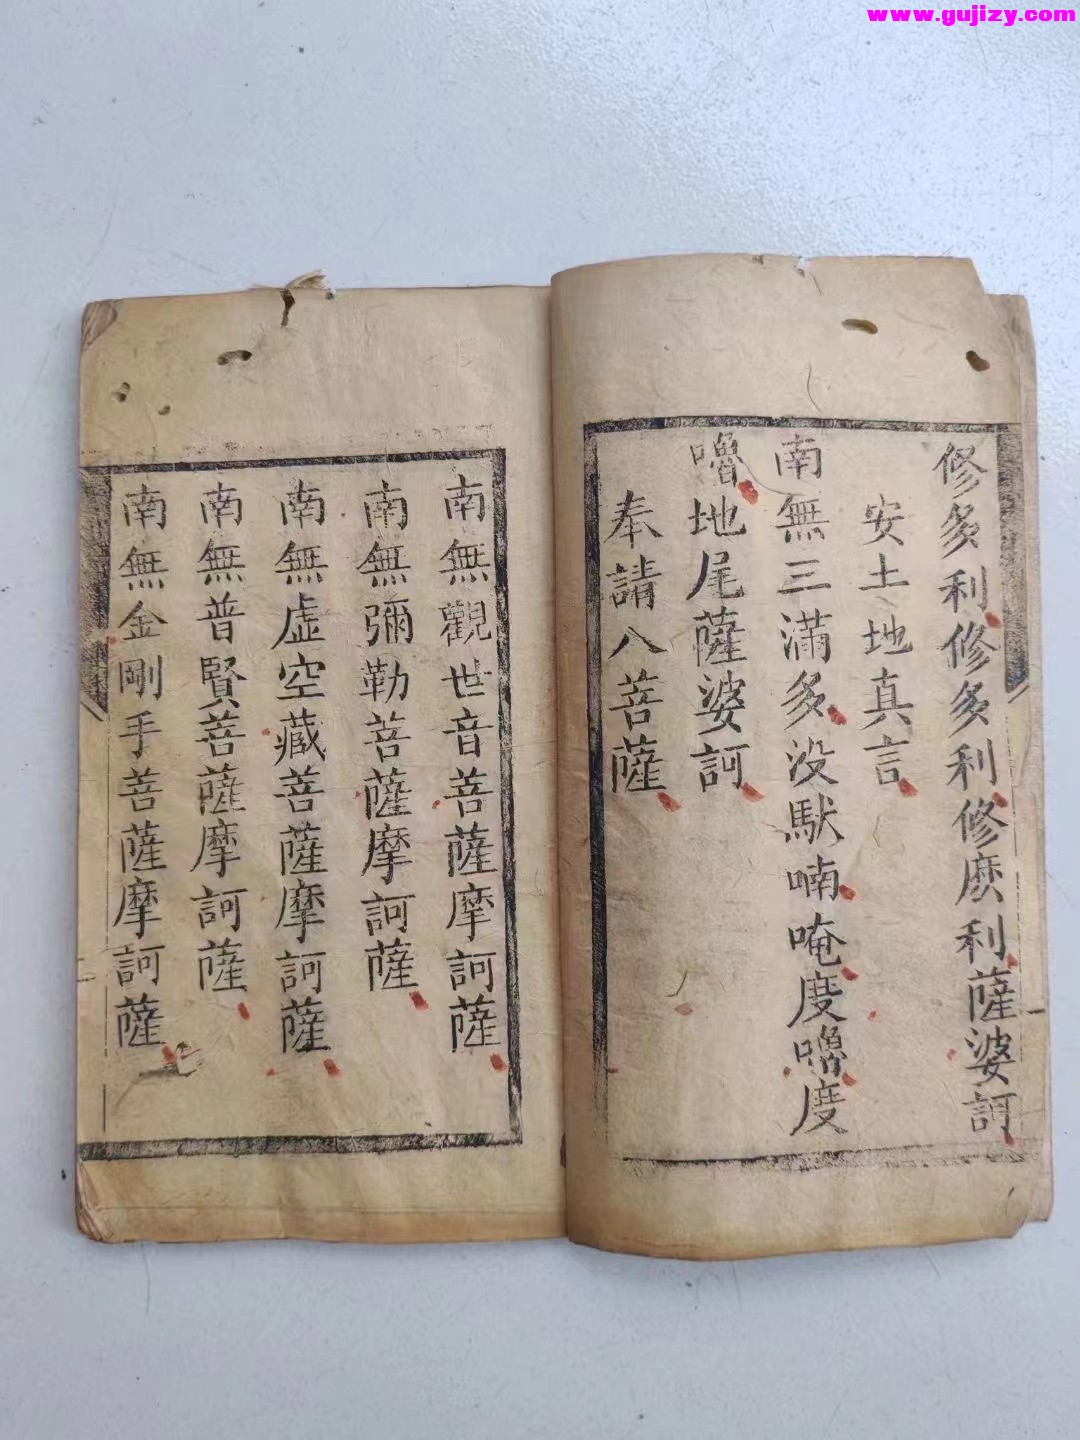 www.gujizy.com
修多利修多利修麽利薩婆訶
安土地真言
南無三滿多没馱喃唵度嚕度
嚕地尾薩婆訶
奉請八菩薩
南無觀世音菩薩摩訶薩
南無彌勒菩薩摩訶薩
南無虛空藏菩薩摩訶薩
南無普賢菩薩摩訶薩
南無金剛手菩薩摩訶薩